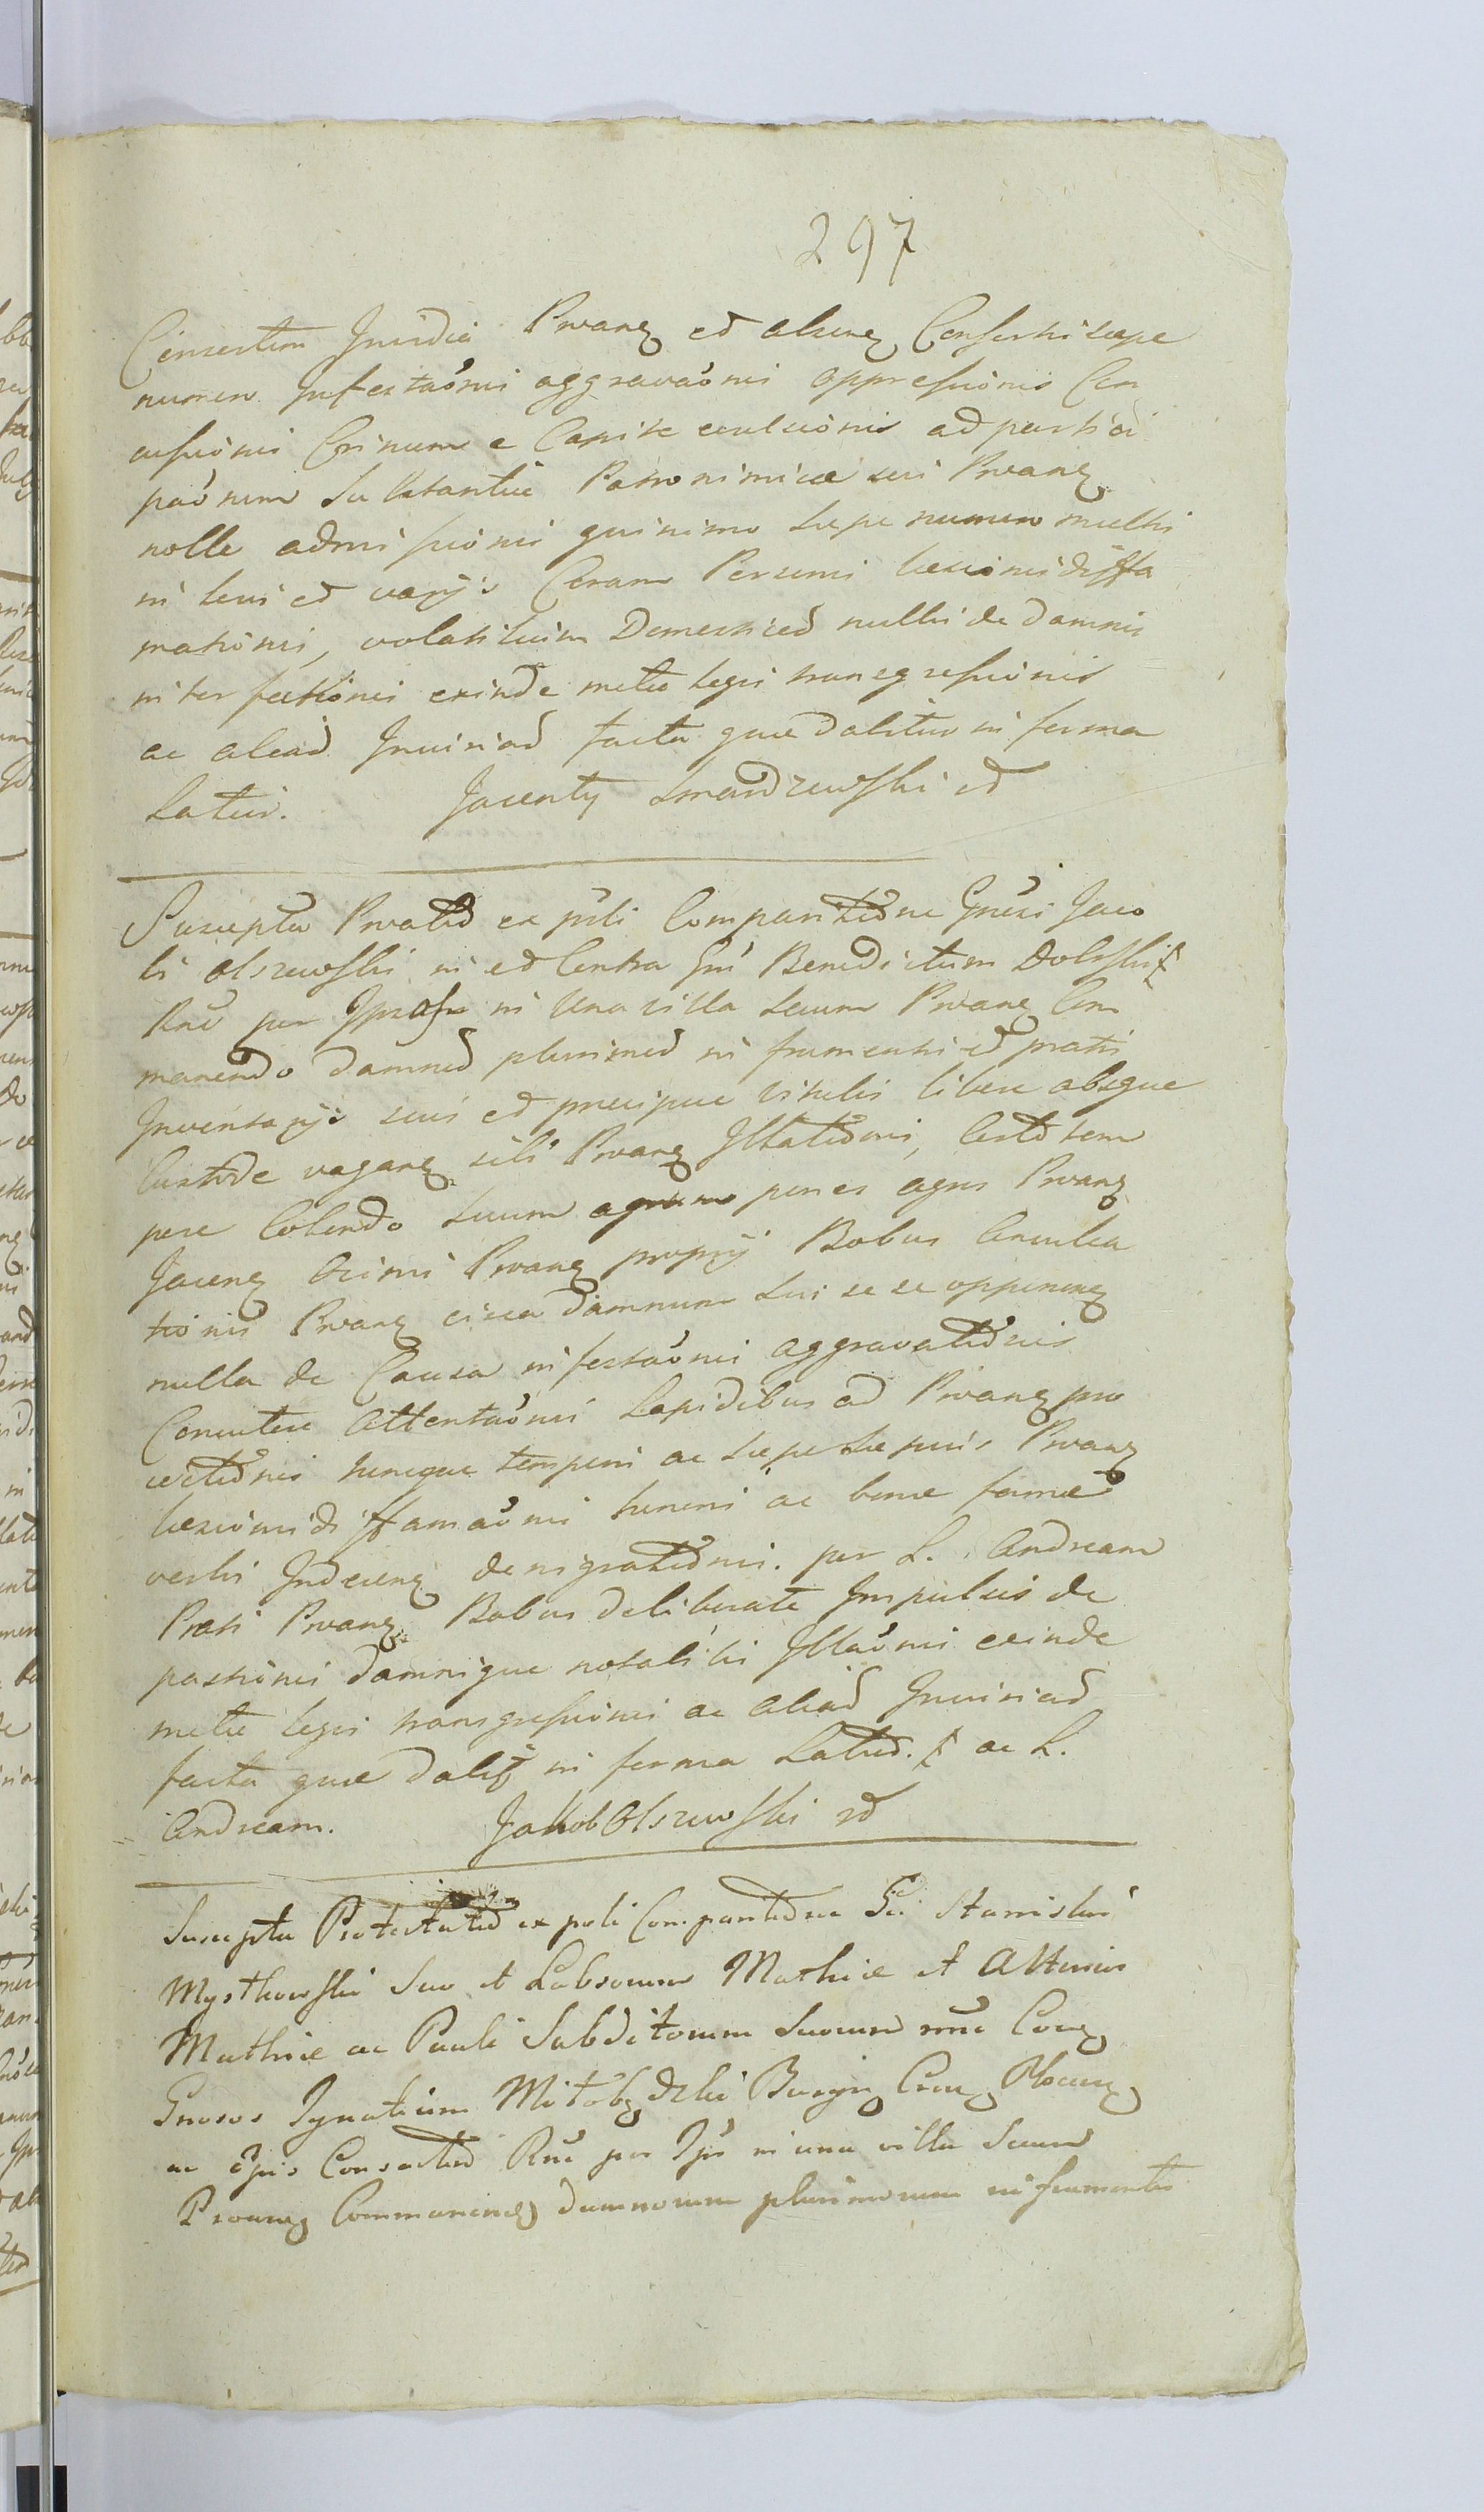 297
Consortem Invidia Prvang et alseng Consortis saepe
numero Infestaõnis aggravaõnis oppressionis Con
cussionis Crinum e Capite evulsionis ad partici
paõnem Substantiae Patronimicae sui Prvang
nolle admissionis quinimo saepe numero multis
in levis et varijs Coram Personis laesionis diffa
mationis, volatilium Domesticoꝝ nullis de damnis
interfectionis exinde metu legis transgressionis
ac aliaꝝ Iniuriaꝝ facta quae dabitur in forma
Latius. Jacenty Smardzewski
Suscepta Prvatio ex psli Comparitione Gnesi Jaco
bi Olszewski in et Contra Gnũ Benedictum Dolski
Rnẽ per Ipsos in Una villa secum Prvang Com
manendo damnoꝝ plurimoꝝ in frumentis et pratis
Inventarijs suis et praecipue vitulis libere absque
Custode vagang sibi Prvang Illationis, Certo tem
pore Colendo suum agrum penes agros Prvang
Jaceng Prvang proprij Bobus Conculca
tionis Prvang circa damnum sui se se opponeng
nulla de Causa infestaõnis aggravationis
Concutere Attentaõnis Lapidibus ad Prvang pro
iectionis tuncque temporis ac saepe saepius Prvang
laesionis diffamaõnis honoris ac bonae famae
verbis Indeceng denigrationis. per L. Andream
Prati Prvang Bobus deliberate Impulsis de
pastionis damnique notabilis Illaõnis exinde
metu legis transgressionis ac aliaꝝ Iniuriaꝝ
facta quae dabit in forma Latioꝝ. ac L.
Andream. Jakob Olszewski
Suscepta Protestatio ex psli Comparitione Gñ Stanislai
Mystkowski Suo et Labsorum Mathiae et Alterius
Mathiae ac Pauli Subditorum Suorum Cong
Gnosos Ignatium Burgg Cron Plocen
ac Ejus Consortem Rnẽ per Ips in una villa Secum
Prvang Commaneng damnorum plurimorum in frumentis